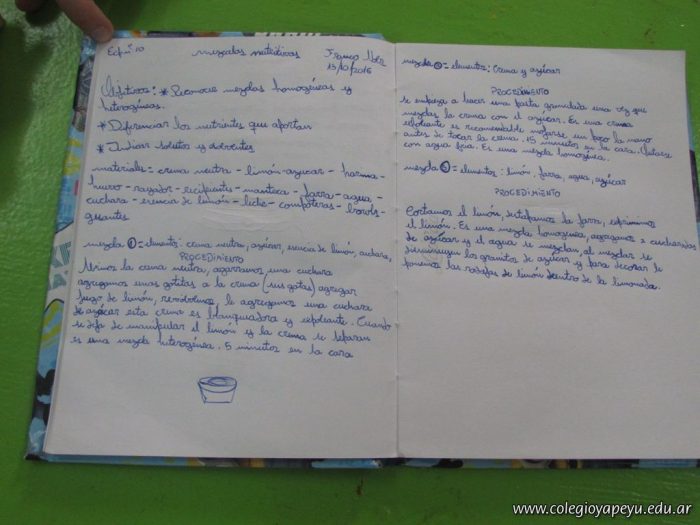 mezclas nutritivas
13/10/2016
Objetivos: * Reconocer mezclas homogéneas y
heterogéneas.
* Diferenciar los nutrientes que aportan
* Indicar solutos y solventes
materiales = crema neutra - limón - azúcar - harina -
huevo - rayador - recipientes - manteca - jarra - agua -
cuchara - esencia de limón - leche - compoteras - bowls -
guantes
mezcla ① = elementos: crema neutra, azúcar, esencia de limón, cuchara,
PROCEDIMIENTO
la crema neutra, agarramos una cuchara
agregamos unas gotitas a la crema (seis gotas) agregar
jugo de limón, revolvemos, le agregamos una cuchara
de azúcar esta crema es blanqueadora y exfoliante. Cuando
se deja de manipular el limón y la crema se separan
es una mezcla heterogénea. 5 minutos en la cara
mezcla ② = elementos: Crema y azúcar
PROCEDIMIENTO
se empieza a hacer una pasta granulada una vez que
mezclas la crema con el azúcar. Es una crema
exfoliante es recomendable mojarse un poco la mano
antes de tocar la crema. 15 minutos en la cara.
con agua fría. Es una mezcla homogénea.
mezcla ③ = elementos: limón, jarra, agua, azúcar
PROCEDIMIENTO
Cortamos el limón, la jarra, exprimimos
el limón. Es una mezcla homogénea, agregamos 2 cucharadas
de azúcar y el agua se mezclan, al mezclar se
disminuyen los granitos de azúcar y para decorar le
ponemos las rodajas de limón dentro de la limonada.
www.colegioyapeyu.edu.ar